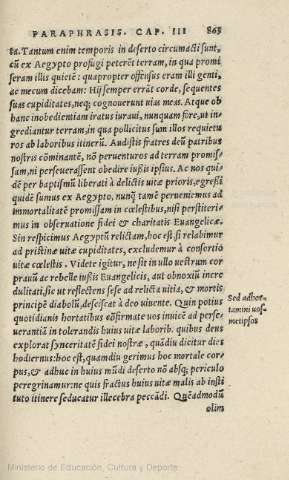 PARAPHRASIS. CAP. III 865
ta. Tantum enim temporis in deserto circumacti sunt,
cũ ex Aegypto profugi peterẽt terram, in qua promi
seram illis quietẽ: quapropter offensus eram illi genti,
ac mecum dicebam: Hi semper errãt corde, sequentes
suas cupiditates, neq; cognouerunt uias meas. Atque ob
hanc inobedientiam iratus iuraui, nunquam fore, ut in
grediantur terram, in qua pollicitus sum illos requietu
ros ab laboribus itinerũ. Audistis fratres deũ patribus
nostris cõminantẽ, nõ peruenturos ad terram promis
sam, ni perseuerassent obedire iussis ipsius. Ac nos qui
dẽ per baptismũ liberati à delictis uitæ prioris, egressi
quidẽ sumus ex Aegypto, nunq̃ tamẽ perueniemus ad
immortalitatẽ promissam in cœlestibus, nisi perstiteri
mus in obseruatione fidei & charitatis Euangelicæ.
Sin respicimus Aegyptũ relictam, hoc est, si relabimur
ad pristinæ uitæ cupiditates, excludemur à consortio
uitæ cœlestis. Videte igitur, ne sit in ullo uestrum cor
prauũ ac rebelle iussis Euangelicis, aut obnoxiũ incre
dulitati, sic ut reflectens sese ad relicta uitia, & mortis
principẽ diabolũ, desciscat à deo uiuente. Quin potius
quotidianis hortatibus eõfirmate uos inuicẽ ad perse-
uerantiã in tolerandis huius uitæ laborib. quibus deus
explorat synceritatẽ fidei nostræ, quãdiu dicitur dies
hodiernus: hoc est, quamdiu gerimus hoc mortale cor
pus, & adhuc in huius mũdi deserto nõ absq; periculo
peregrinamur: ne quis fractus huius uitæ malis ab insti
tuto itinere seducatur illecebra peccãdi. Quẽadmodũ
olim
Sed adhor-
tamini uos-
metipsos
Ministerio de Educación, Cultura y Deporte